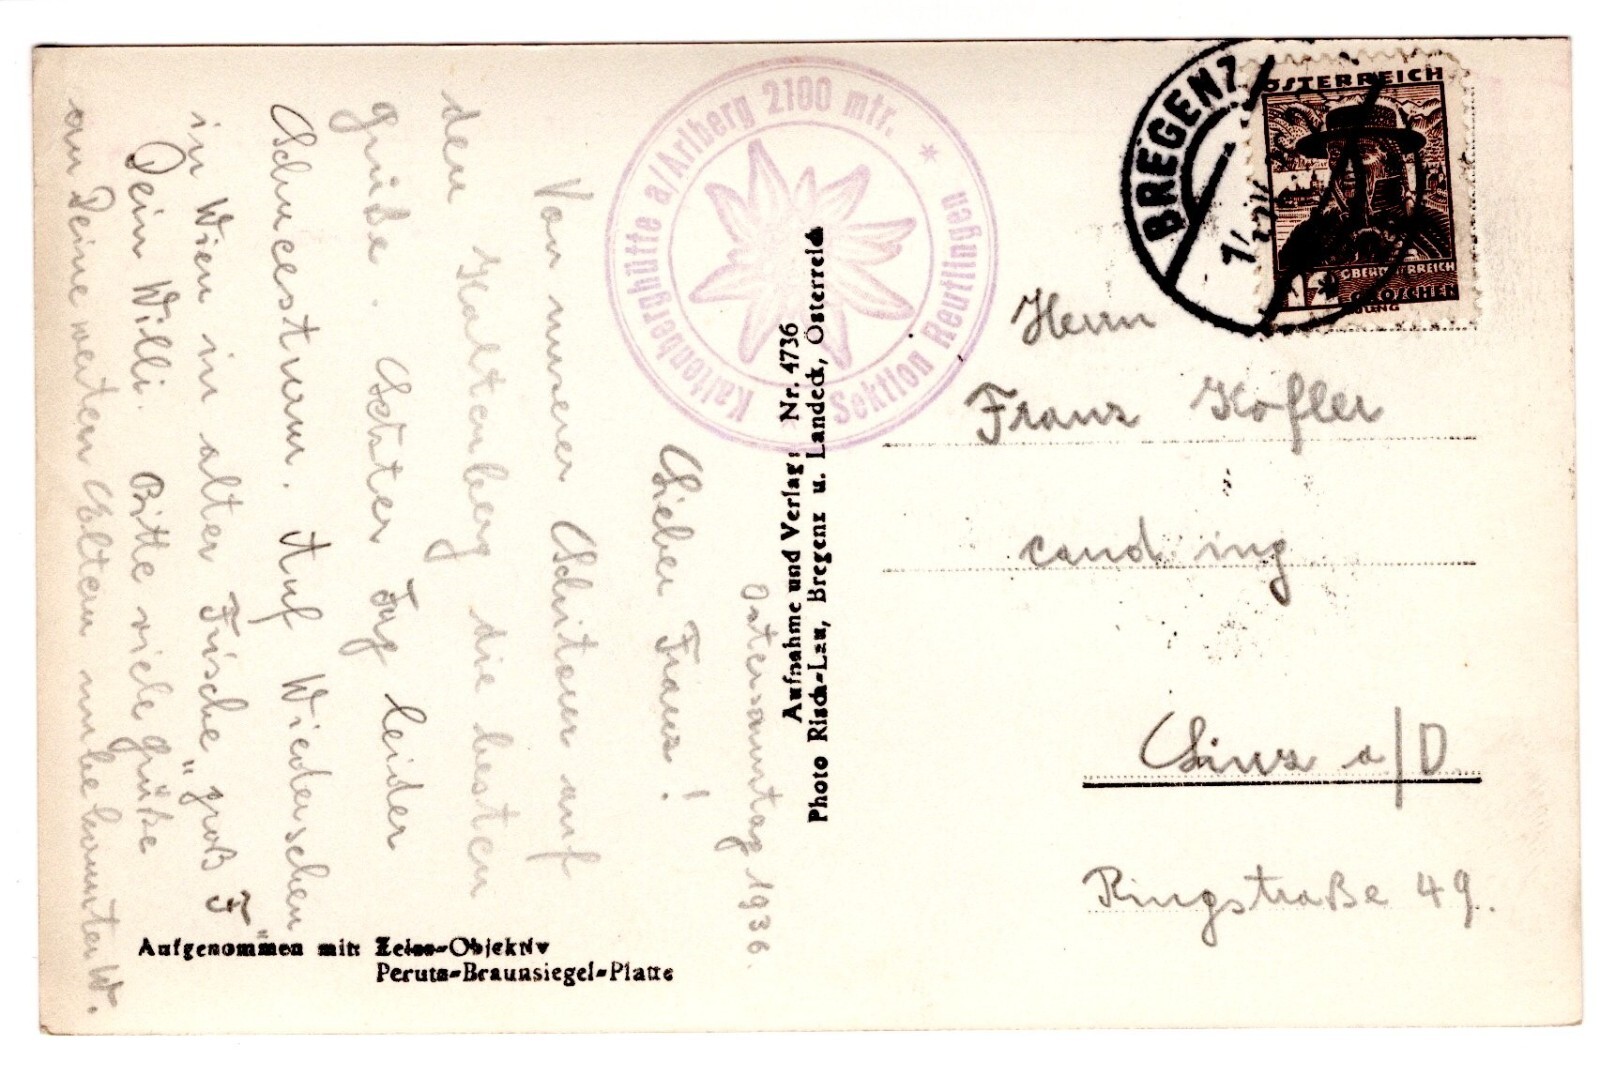 Ostersonntag 1936.
Lieber Franz!
Von unserer Schitour auf
den Kaltenberg die besten
Grüße. Letzter Tag leider
Schneesturm. Auf Wiedersehen
in Wien in alter Frische „groß F“
Dein Willi. Bitte viele Grüße
an Deine werten Eltern unbekannter W.
Kaltenberghütte a/Arlberg 2100 mtr. *
Sektion Reutlingen
Aufnahme und Verlag: Nr. 4736
Photo Risch-Lau, Bregenz u. Landeck, Österreich
Aufgenommen mit: Zeiss-Objektiv
Perutz-Braunsiegel-Platte
BREGENZ
ÖSTERREICH
OBERÖSTERREICH
GROSCHEN
Herrn
Franz Kofler
cand ing
Linz a/D
Ringstraße 49.